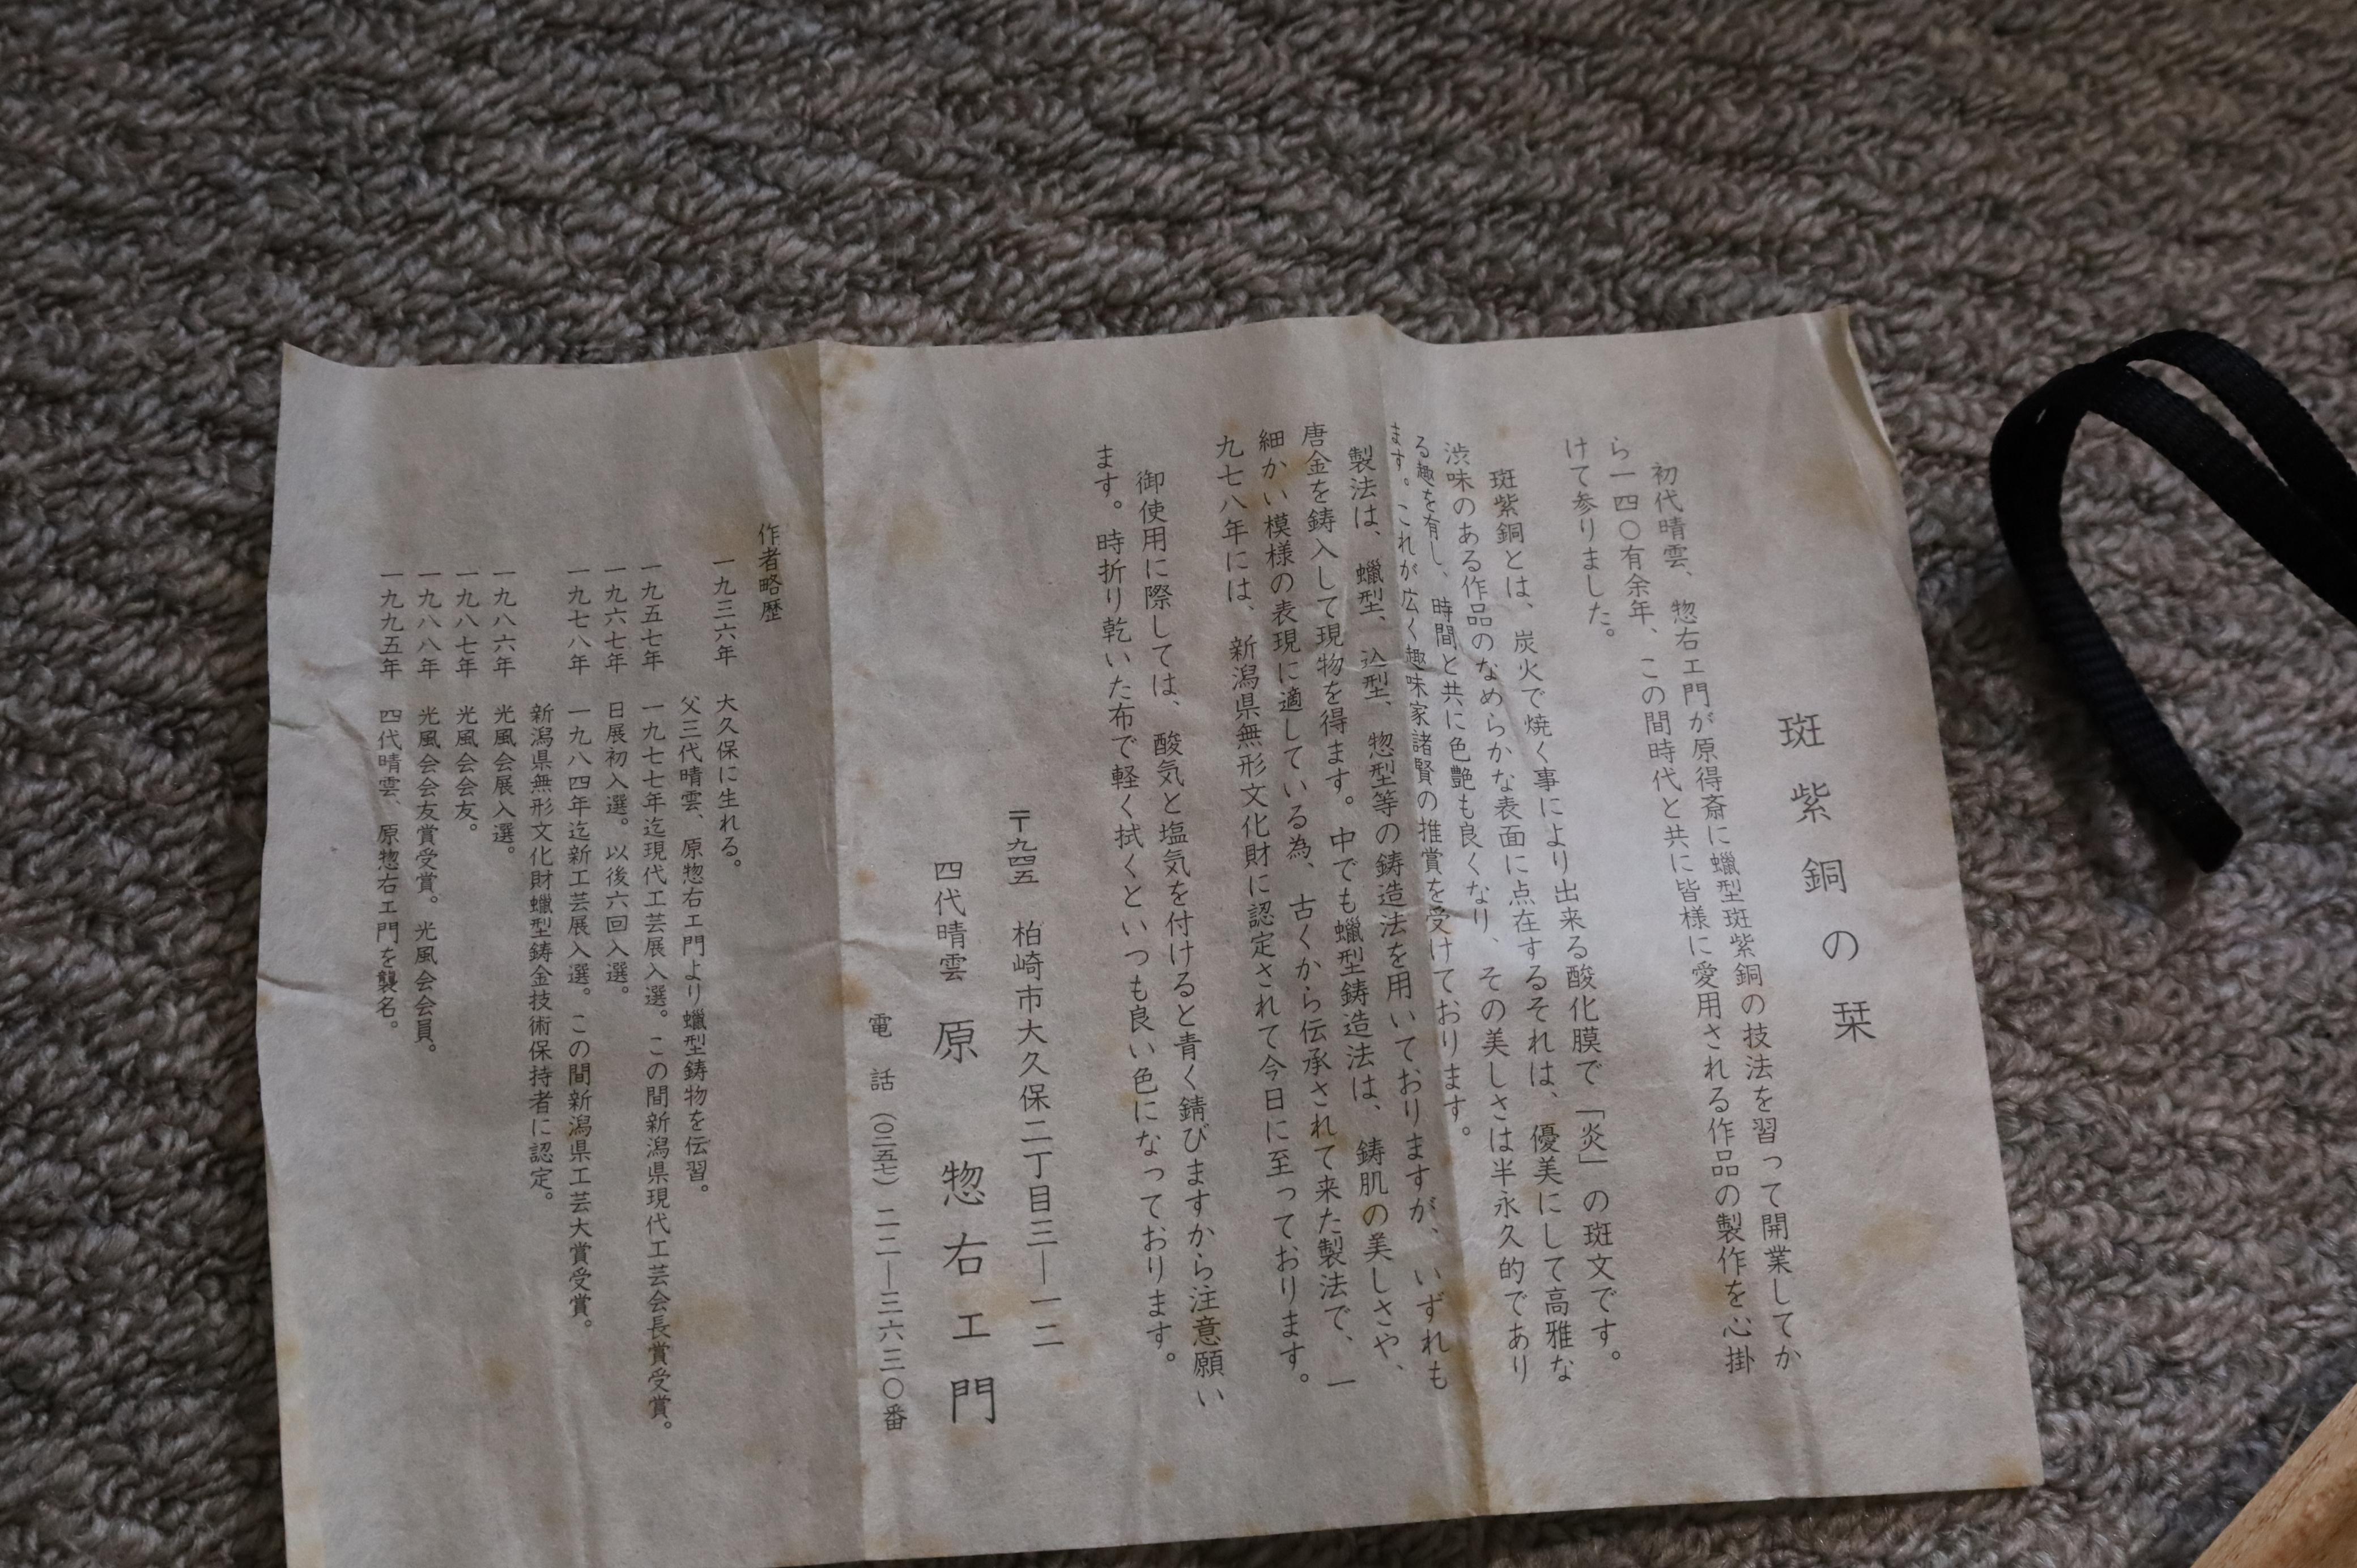 斑紫銅の栞
初代晴雲、惣右エ門が原得斎に蠟型斑紫銅の技法を習って開業してか
ら一四〇有余年、この間時代と共に皆様に愛用される作品の製作を心掛
けて参りました。
斑紫銅とは、炭火で焼く事により出来る酸化膜で「炎」の斑文です。
渋味のある作品のなめらかな表面に点在するそれは、優美にして高雅な
る趣を有し、時間と共に色艶も良くなり、その美しさは半永久的であり
ます。これが広く趣味家諸賢の推賞を受けております。
製法は、蠟型、込型、惣型等の鋳造法を用いておりますが、いずれも
唐金を鋳入して現物を得ます。中でも蠟型鋳造法は、鋳肌の美しさや、
細かい模様の表現に適している為、古くから伝承されて来た製法で、一
九七八年には、新潟県無形文化財に認定されて今日に至っております。
御使用に際しては、酸気と塩気を付けると青く錆びますから注意願い
ます。時折り乾いた布で軽く拭くといつも良い色になっております。
〒九四五 柏崎市大久保二丁目三―一二
四代晴雲 原 惣右エ門
電話(〇二五七)二二―三六三〇番
作者略歴
一九三六年 大久保に生れる。
父三代晴雲、原惣右エ門より蠟型鋳物を伝習。
一九五七年 一九七七年迄現代工芸展入選。この間新潟県現代工芸会長賞受賞。
一九六七年 日展初入選。以後六回入選。
一九七八年 一九八四年迄新工芸展入選。この間新潟県工芸大賞受賞。
新潟県無形文化財蠟型鋳金技術保持者に認定。
一九八六年 光風会展入選。
一九八七年 光風会会友。
一九八八年 光風会会友賞受賞。光風会会員。
一九九五年 四代晴雲、原惣右エ門を襲名。